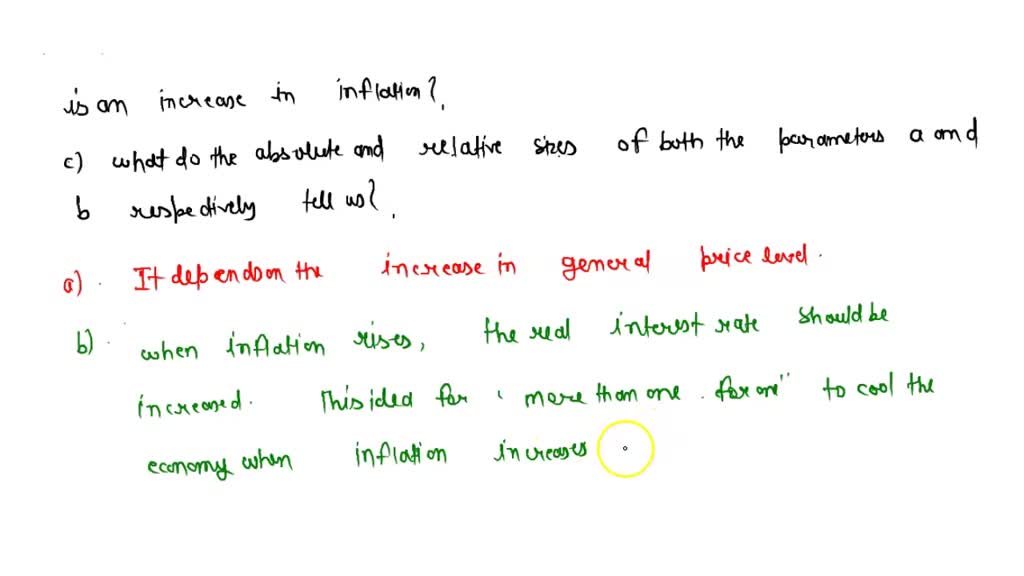 is an increase in inflation?
c) what do the absolute and relative sizes of both the parameters a and
b respectively tell us?
a). It depends on the increase in general price level.
b). when inflation rises, the real interest rate should be
increased. This idea for "more than one for one" to cool the
economy when inflation increases